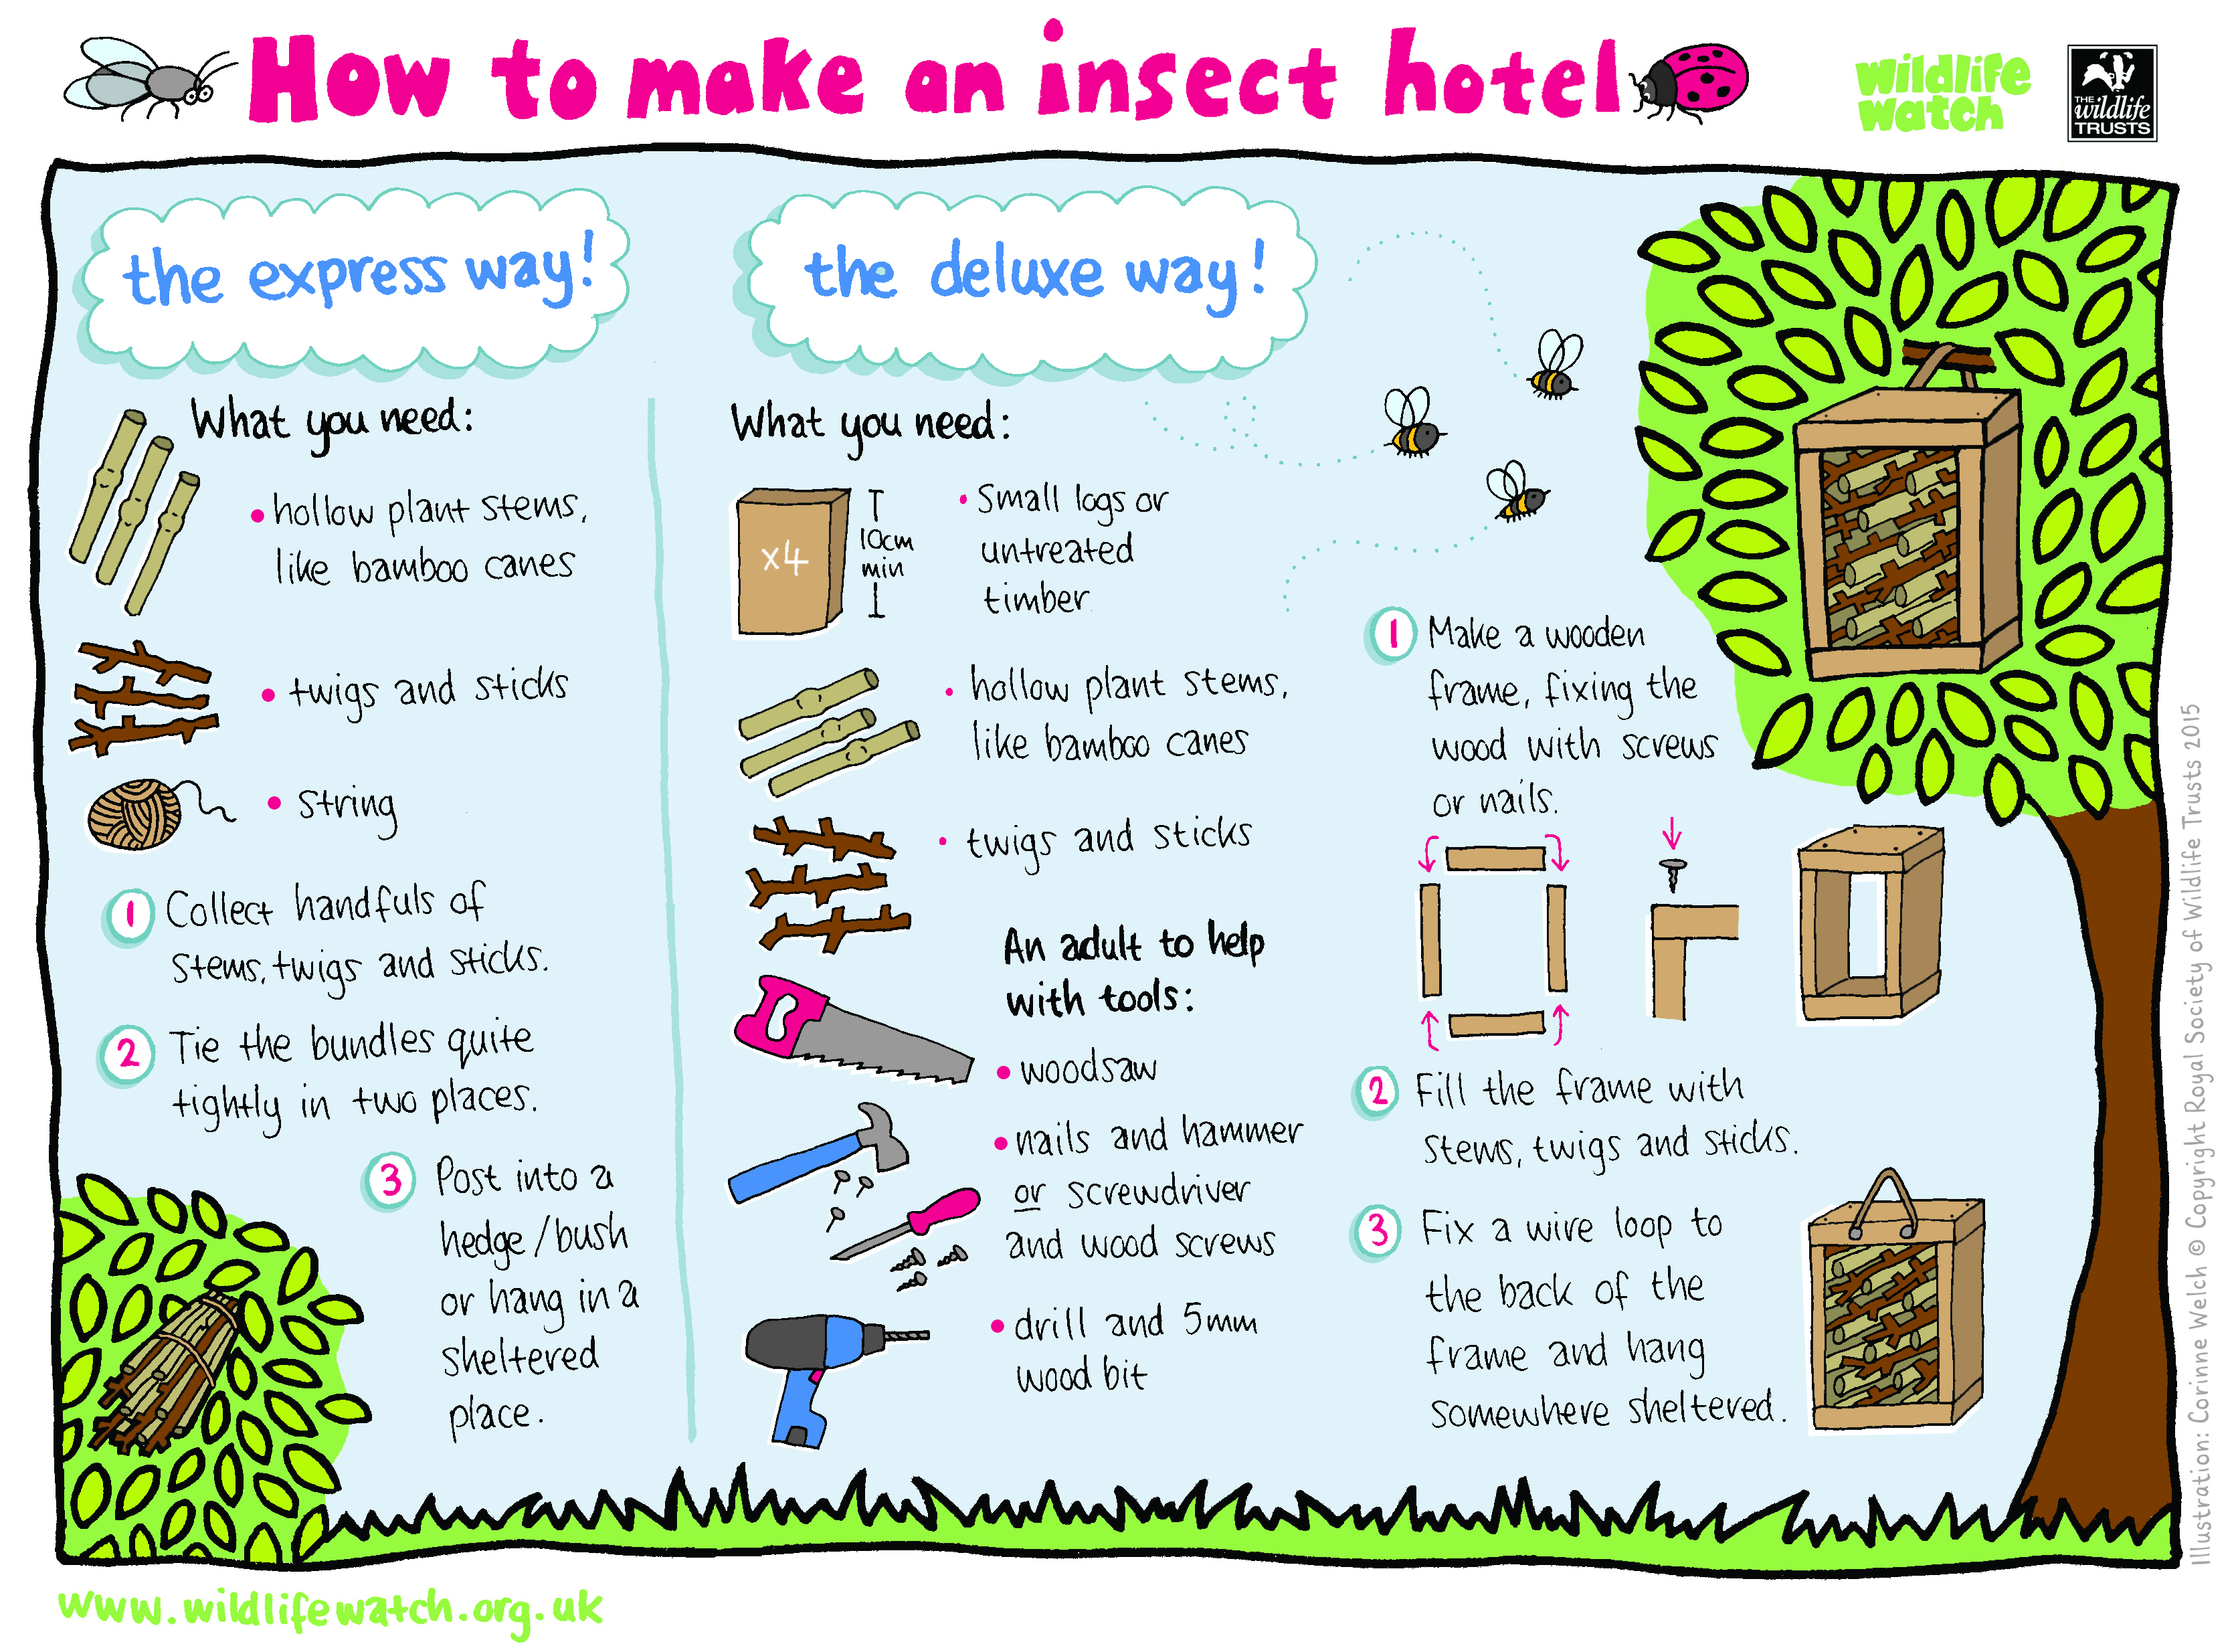 How to make an insect hotel
wildlife
watch
THE
wildlife
TRUSTS
the express way!
What you need:
• hollow plant stems,
like bamboo canes
• twigs and sticks
• string
1 Collect handfuls of
stems, twigs and sticks.
2 Tie the bundles quite
tightly in two places.
3 Post into a
hedge/bush
or hang in a
sheltered
place.
the deluxe way!
What you need:
x4
10cm
min
• Small logs or
untreated
timber
• hollow plant stems,
like bamboo canes
• twigs and sticks
An adult to help
with tools:
• woodsaw
• nails and hammer
or screwdriver
and wood screws
• drill and 5mm
wood bit
1 Make a wooden
frame, fixing the
wood with screws
or nails.
2 Fill the frame with
stems, twigs and sticks.
3 Fix a wire loop to
the back of the
frame and hang
somewhere sheltered.
Illustration: Corinne Welch © Copyright Royal Society of Wildlife Trusts 2015
www.wildlifewatch.org.uk